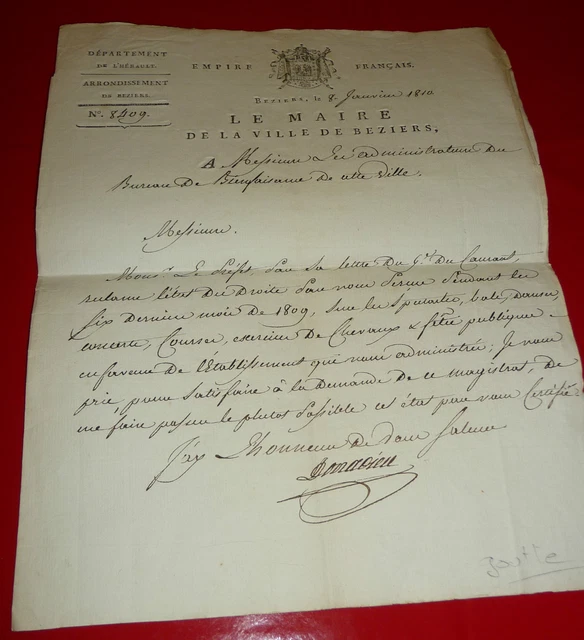 DÉPARTEMENT
DE L'HÉRAULT.
ARRONDISSEMENT
DE BEZIERS.
N.º 8409.
EMPIRE FRANÇAIS.
BEZIERS, le 8. Janvier 1810.
LE MAIRE
DE LA VILLE DE BEZIERS,
A Messieurs Les administrateurs Du
Bureau De Bienfaisance De cette Ville.
Messieurs.
Mons.r Le Préfet, par sa lettre Du 4.e Du Courant,
reclame l'état Des Droits par vous perçus pendant les
six Derniers mois De 1809, sur les spectacles, bals, Danses,
concerts, Courses, exercices De Chevaux & fêtes publiques
en faveur De l'Établissement que vous administrés; Je vous
prie, pour satisfaire à la Demande De ce magistrat, De
me faire passer le plutot possible cet état par vous Certifié
J'ay L'honneur De Vous saluer